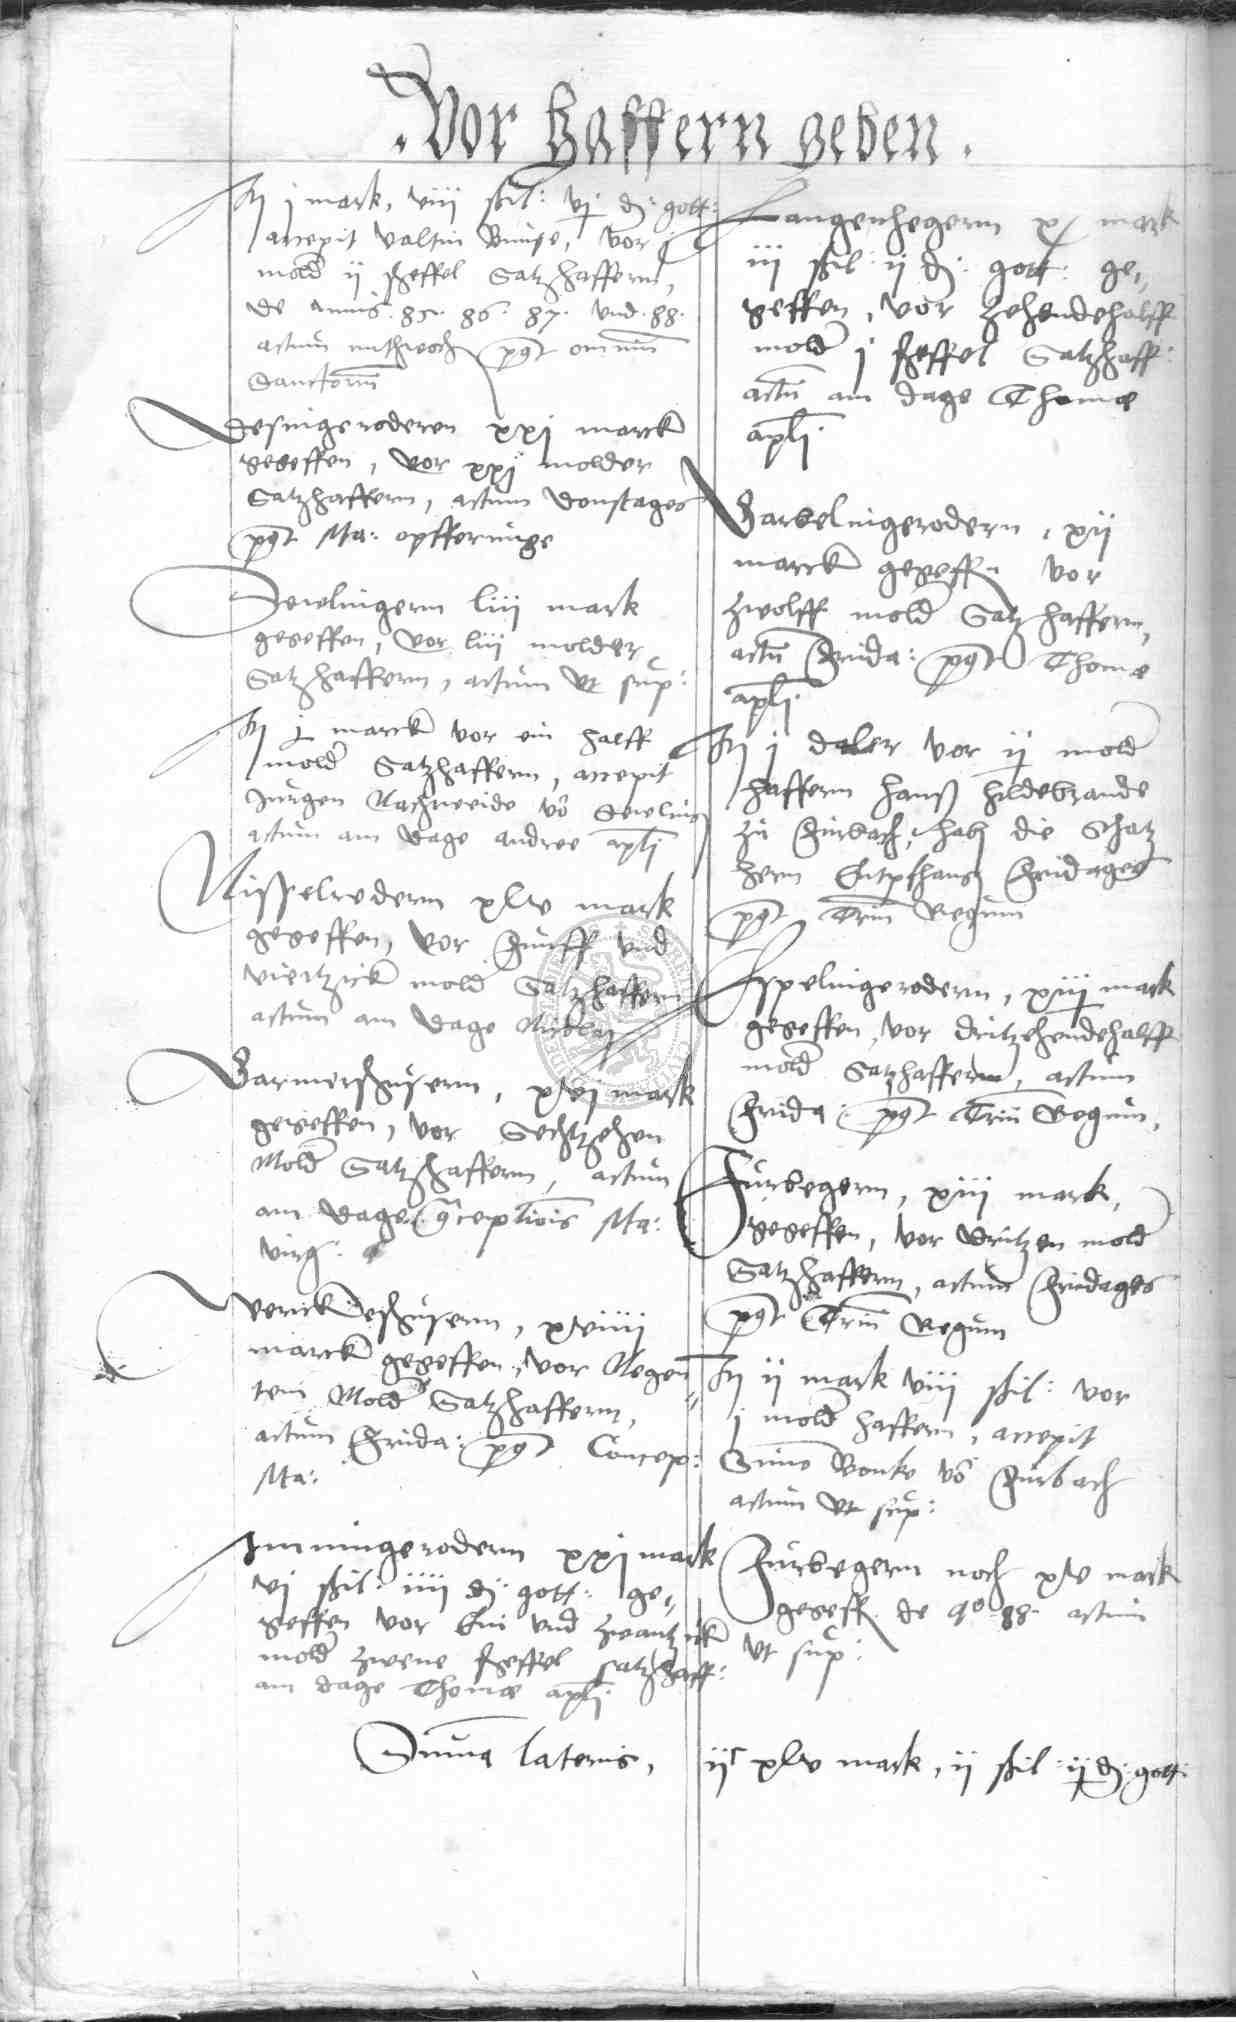 Vor haffern geben.
It j mark, viij schil: vj d: gott:
accepit Valtin Bunse, vor j
mold ij scheffel Satzhaffern,
de annis. 85. 86. 87. und. 88.
actum mithwoch post omnium
Sanctorum
Desingeroderen xxj marck
gegeffen, vor xxj molder
Satzhaffern, actum donstages
post Ma: opfferinge
Sewelingern liij mark
gegeffen, vor liij molder
Satzhaffern, actum ut sup:
It j marck vor ein halff
mold Satzhaffern, accepit
Jurgen Nachweide vo
actum am dage andree apli
Nisselredern xlv mark
gegeffen, vor funff und
viertzick mold Satzhaffern
actum am dage Nicolaj
Garmershusern, xvj mark
gegeffen, vor Sechtzehen
Mold Satzhaffern, actum
am dage conceptionis Ma:
virg:
Werckeshusern, xviiij
marck gegeffen, vor Negen
tein Mold Satzhaffern,
actum Frida: post Concep:
Ma:
Immingerodern xxj mark
vj schil: iiij d: gott: ge,,
geffen vor Ein und zwantzick
mold zwene scheffel satzhaff:
am dage Thomæ apli.
Langenhegern x mark
iij schil: ij d: gott: ge,,
geffen, vor Zehendehalff
mold j scheffel Satzhaff:
actu am dage Thomæ
apli.
Garvelingerodern, xij
marck gegeffen vor
zwolff mold Satzhaffern,
actu Frida: post Thomæ
apli.
It j daler vor ij mold
haffern hanß hildebrande
zu Furbach, die Schatz
hern Fridages
post Trium Regum
Espelingerodern, xiij mark
gegeffen, vor dritzehendehalff
mold Satzhaffern, actum
Frida: post Trium Regum,
Furbegern, xiij mark,
gegeffen, vor dritzen mold
Satzhaffern, actum Fridages
post Trium Regum
It ij mark viij schil: vor
j mold haffern, accepit
Simon Bonke vo Furbach
actum ut sup:
Furbegern noch xlv mark
gegeff. de ao. 88. actum
ut sup:
Summa lateris, ijc xlv mark, ij schil: ij d: gott: